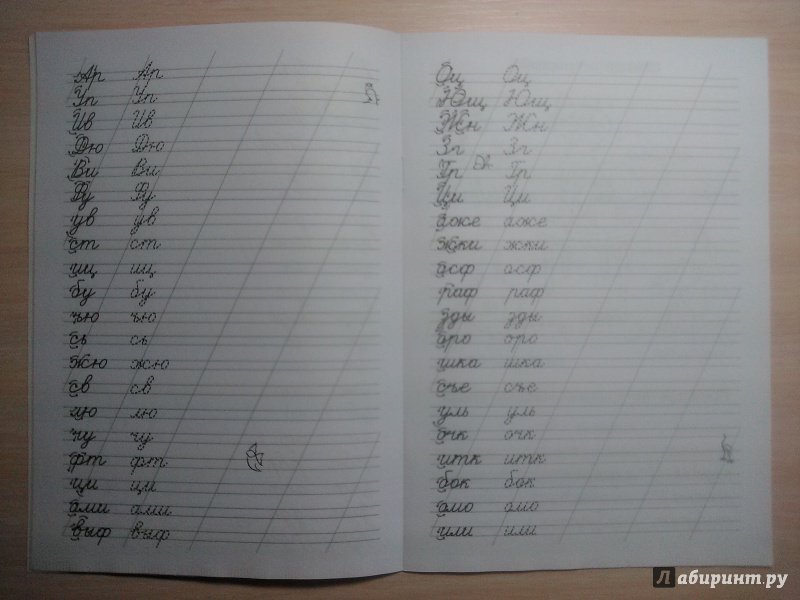 Ар Ар
Ул Ул
Ив Ив
Дю Дю
Ви Ви
Фу Фу
ув ув
ст ст
щ щ
бу бу
ъю ъю
сь сь
жю жю
св св
лю лю
чу чу
фт фт
ци ци
ами ами
выф выф
Ощ Ощ
Ющ Ющ
Жн Жн
Зг Зг
Гр Гр
Ци Ци
аже аже
жки жки
асф асф
раф раф
зды зды
оро оро
шка шка
съе съе
уль уль
очк очк
итк итк
бок бок
омо омо
или или
Лабиринт.ру